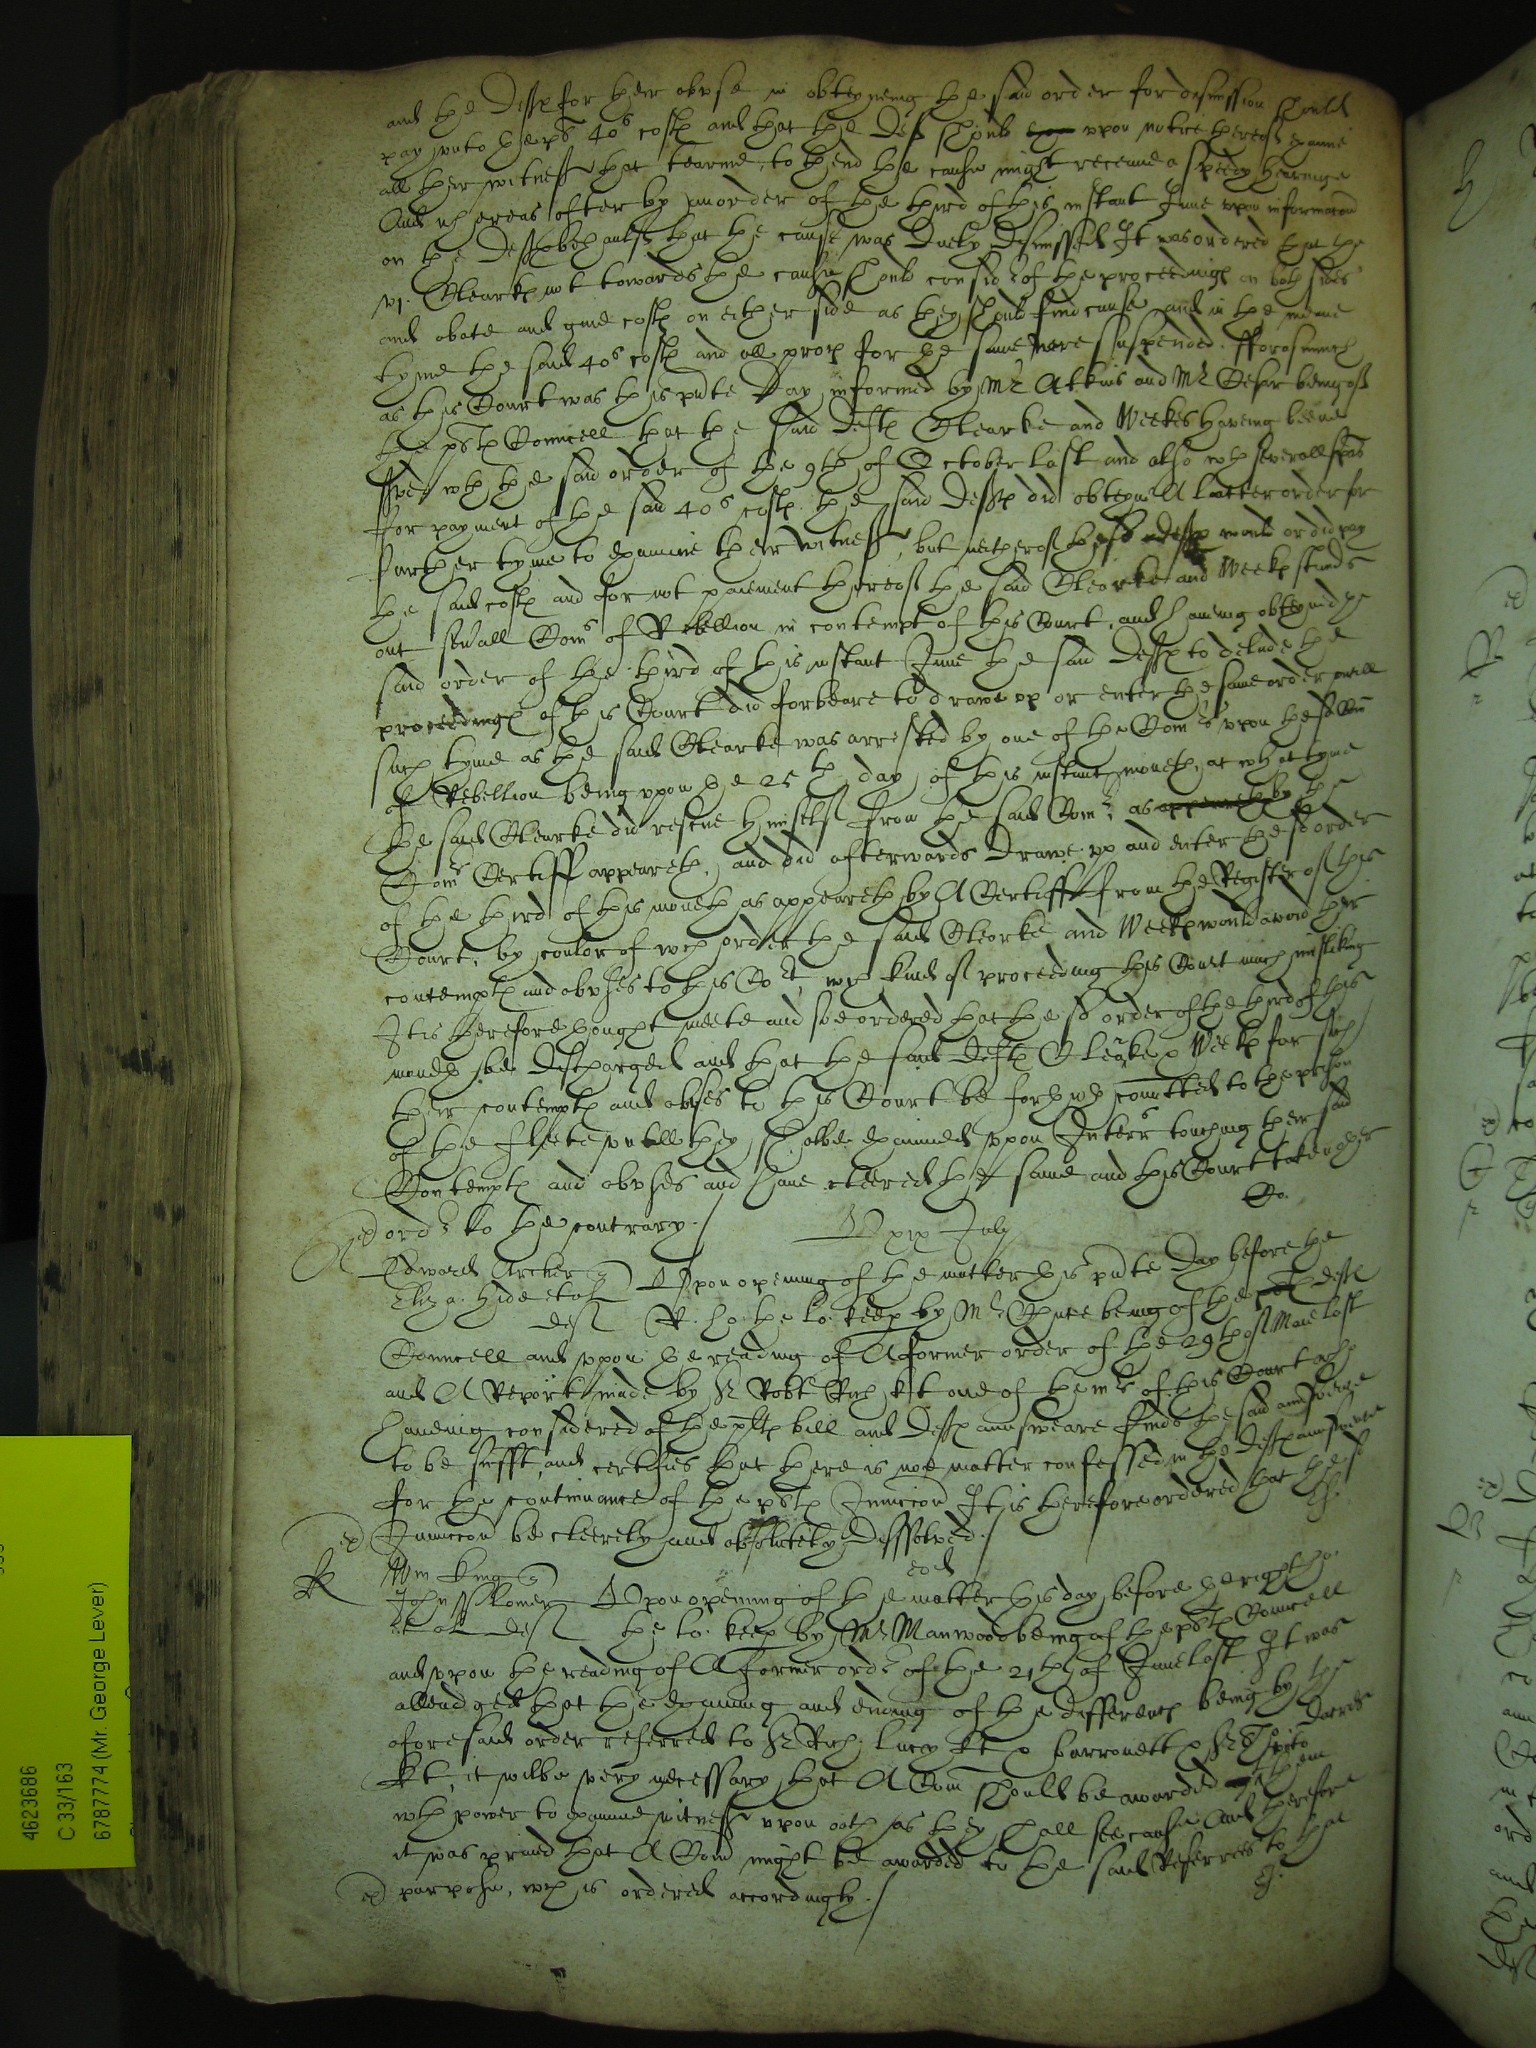 and the Deftes for their abuse in obteyneing the said order for dismission should
pay unto the pts 40s costes and that the Deft should upon notice thereof examine
all their witnesses that tearme, to thend the cause might receaue a speedy hearinge
And whereas after by an order of the third of this instant June upon informacon
on the Deftes behaulfe that the cause was duely dismissed It was ordered that the
vj. Clearkes not towardes the cause should consider of the proceedinges on both sides
and abate and giue costes on either side as they should find cause and in the meane
tyme the said 40s costes and all proces for the same were suspended. fforasmuch
as this Court was this pnte day informed by Mr Atkins and Mr Cesar being of
the pltes Councell that the said Deftes Clearke and Weekes haveing beene
served with the said order of the 9th of October last and also with severall
for payment of the said 40s costes. the said Deftes did obteyne A latter order for
further tyme to examine their witnesses, but neither of the sd deftes would or did pay
the said costes and for not paiement thereof the said Clearke and Weekes standes
out seuall Coms of Rebellion in contempt of this Court, and haueing obteyned the
said order of the third of this instant June the said Deftes to delude the
proceedinges of this Court did forbeare to drawe up or enter the same order untill
such tyme as the said Clearke was arrested by one of the Comrs upon the sd Com
of Rebellion being upon the 25th day of this instant moneth, at which tyme
the said Clearke did rescue himselfe from the said Comr as appeareth by the
Comrs Certiff appeareth, and did afterwards Drawe up and enter the sd order
of the third of this moneth as appeareth by A Certiff from the Register of this
Court, by coulor of wch order the said Clearke and Weekes would avoid their
contemptes and abuses to this Cort, wch kind of proceeding this Court much misliking
It is therefore thought meete and soe ordered that the sd order of the third of this
moneth be discharged and that the said Deftes Clearke & Weekes for such
their contemptes and abuses to this Court be forthwth comitted to the prison
of the Fleete untill they shalbe examined upon Interrs touching their said
Contemptes and abuses and haue cleered the same and this Court take other
ordr to the contrary.
Co.
xix July
Edward Archer
Eliza. Hide et al
deft
Upon opening of the matter this pnte Day before the
R. ho. the lo. keep by Mr being of the deft
Councell and upon the reading of A former order of the 29th of Maie last
and A Report made by Sr Robt Rich kt one of the mrs of this Court who
haueing considered of the pltes bill and Deftes aunsweare findes the said aunsweare
to be suffit, and certifies that there is noe matter confessed in the Deftes aunsweare
for the continuance of the pltes Iniuncon It is therefore ordered that the sd
Iniuncon be cleerely and absolutely Dissolved.
Wm King
John
et al deft
eod
Upon opening of the matter this day before the right ho.
the lo. keep by Mr Manwood being of the pltes Councell
and upon the reading of A former ordr of the 21th of June last It was
alleadged that the examing and ending of the differences being by the
aforesaid order referred to Sr Rich: Lucy kt & barronett & Sr
kt, it wilbe very necessary that A Com should be awarded to them
wth power to examine witnesses upon oath as they shall see cause And therefore
it was praied that A Com might be awarded to the said Referrees to that
purpose, wch is ordered accordingly.
4623686
C 33/163
6787774 (Mr. George Lever)